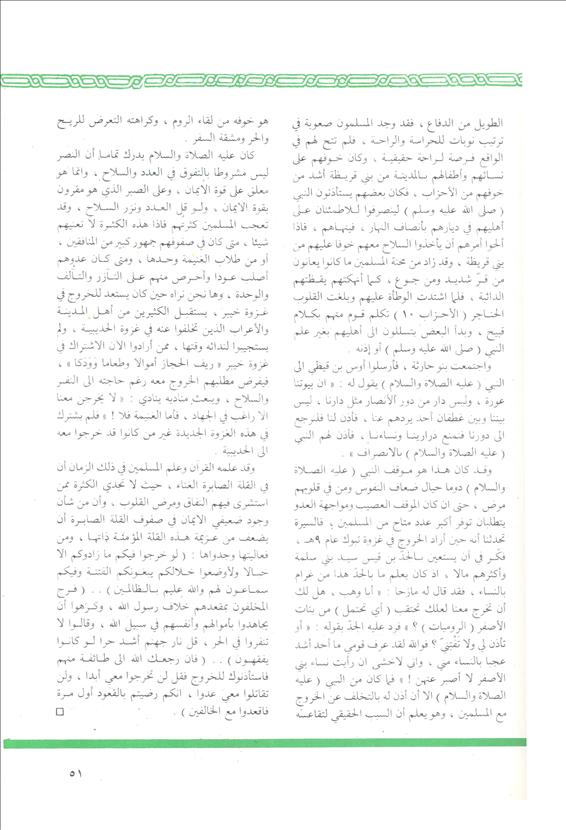 الطويل من الدفاع ، فقد وجد المسلمون صعوبة في
ترتيب نوبات للحراسة والراحة ، فلم تتح لهم في
الواقع فرصة لراحة حقيقية ، وكان خوفهم على
نسائهم وأطفالهم بالمدينة من بني قريظة أشد من
خوفهم من الأحزاب ، فكان بعضهم يستأذنون النبي
( صلى الله عليه وسلم ) لينصرفوا للاطمئنان على
أهليهم في ديارهم بأنصاف النهار ، فينهاهم ، فاذا
ألحوا أمرهم أن يأخذوا السلاح معهم خوفا عليهم من
بني قريظة ، وقد زاد من محنة المسلمين ما كانوا يعانون
من قر شديد ومن جوع ، كما أنهكتهم يقظتهم
الدائبة ، فلما اشتدت الوطأة عليهم وبلغت القلوب
الحناجر ( الأحزاب ١٠ ) تكلم قوم منهم بكلام
قبيح ، وبدأ البعض يتسللون الى أهليهم بغير علم
النبي ( صلى الله عليه وسلم ) أو إذنه .
واجتمعت بنو حارثة ، فأرسلوا أوس بن قيظي الى
النبي ( عليه الصلاة والسلام ) يقول له : « ان بيوتنا
عورة ، وليس دار من دور الأنصار مثل دارنا ، ليس
بيننا وبين غطفان أحد يردهم عنا ، فأذن لنا فلنرجع
الى دورنا فنمنع ذرارينا ونساءنا ، فأذن لهم النبي
( عليه الصلاة والسلام ) بالانصراف » .
وقد كان هذا هو موقف النبي ( عليه الصلاة
والسلام ) دوما حيال ضعاف النفوس ومن في قلوبهم
مرض ، حتى ان كان الموقف العصيب ومواجهة العدو
يتطلبان توفر أكبر عدد متاح من المسلمين ، فالسيرة
تحدثنا أنه حين أراد الخروج في غزوة تبوك عام ٩هـ ،
فكر في أن يستعين بالجد بن قيس سيد بني سلمة
وأكثرهم مالا ، اذ كان يعلم ما بالجد هذا من غرام
بالنساء ، فقد قال له مازحا : « أبا وهب ، هل لك
أن تخرج معنا لعلك تحتقب ( أي تحتمل ) من بنات
الأصفر ( الروميات ) ؟ » فرد عليه الجد بقوله : « أو
تأذن لي ولا تفتني ؟ فوالله لقد عرف قومي ما أحد أشد
عجبا بالنساء مني ، واني لاخشى ان رأيت نساء بني
الأصفر لا أصبر عنهن ! » فما كان من النبي ( عليه
الصلاة والسلام ) الا أن أذن له بالتخلف عن الخروج
مع المسلمين ، وهو يعلم أن السبب الحقيقي لتقاعسه
هو خوفه من لقاء الروم ، وكراهته التعرض للريح
والحر ومشقة السفر .
كان عليه الصلاة والسلام يدرك تماما أن النصر
ليس مشروطا بالتفوق في العدد والسلاح ، وانما هو
معلق على قوة الايمان ، وعلى الصبر الذي هو مقرون
بقوة الايمان ، ولو قل العدد ونزر السلاح ، وقد
تعجب المسلمين كثرتهم فاذا هذه الكثرة لا تعنيهم
شيئا ، متى كان في صفوفهم جمهور كبير من المنافقين ،
أو من طلاب الغنيمة وحدها ، ومتى كان عدوهم
أصلب عودا وأحرص منهم على التآزر والتآلف
والوحدة ، وها نحن نراه حين كان يستعد للخروج في
غزوة خيبر ، يستقبل الكثيرين من أهل المدينة
والأعراب الذين تخلفوا عنه في غزوة الحديبية ، ولم
يستجيبوا لندائه وقتها ، ممن أرادوا الان الاشتراك في
غزوة خيبر « ريف الحجاز أموالا وطعاما وودكا » ،
فيفرض مطلبهم الخروج معه رغم حاجته الى النفر
والسلاح ، ويبعث مناديه ينادي : « لا يخرجن معنا
الا راغب في الجهاد ، فأما الغنيمة فلا ! » فلم يشترك
في هذه الغزوة الجديدة غير من كانوا قد خرجوا معه
الى الحديبية .
وقد علمه القرآن وعلم المسلمين في ذلك الزمان أن
في القلة الصابرة الغناء ، حيث لا تجدي الكثرة ممن
استشرى فيهم النفاق ومرض القلوب ، وأن من شأن
وجود ضعيفي الايمان في صفوف القلة الصابرة أن
يضعف من عزيمة هذه القلة المؤمنة ذاتها ، ومن
فعاليتها وجدواها : ( لو خرجوا فيكم ما زادوكم الا
خبالا ولأوضعوا خلالكم يبغونكم الفتنة وفيكم
سماعون لهم والله عليم بالظالمين ) .. ( فرح
المخلفون بمقعدهم خلاف رسول الله ، وكرهوا أن
يجاهدوا بأموالهم وأنفسهم في سبيل الله ، وقالوا لا
تنفروا في الحر ، قل نار جهنم أشد حرا لو كانوا
يفقهون ) .. ( فان رجعك الله الى طائفة منهم
فاستأذنوك للخروج فقل لن تخرجوا معي أبدا ، ولن
تقاتلوا معي عدوا ، انكم رضيتم بالقعود أول مرة
فاقعدوا مع الخالفين ) .
٥١